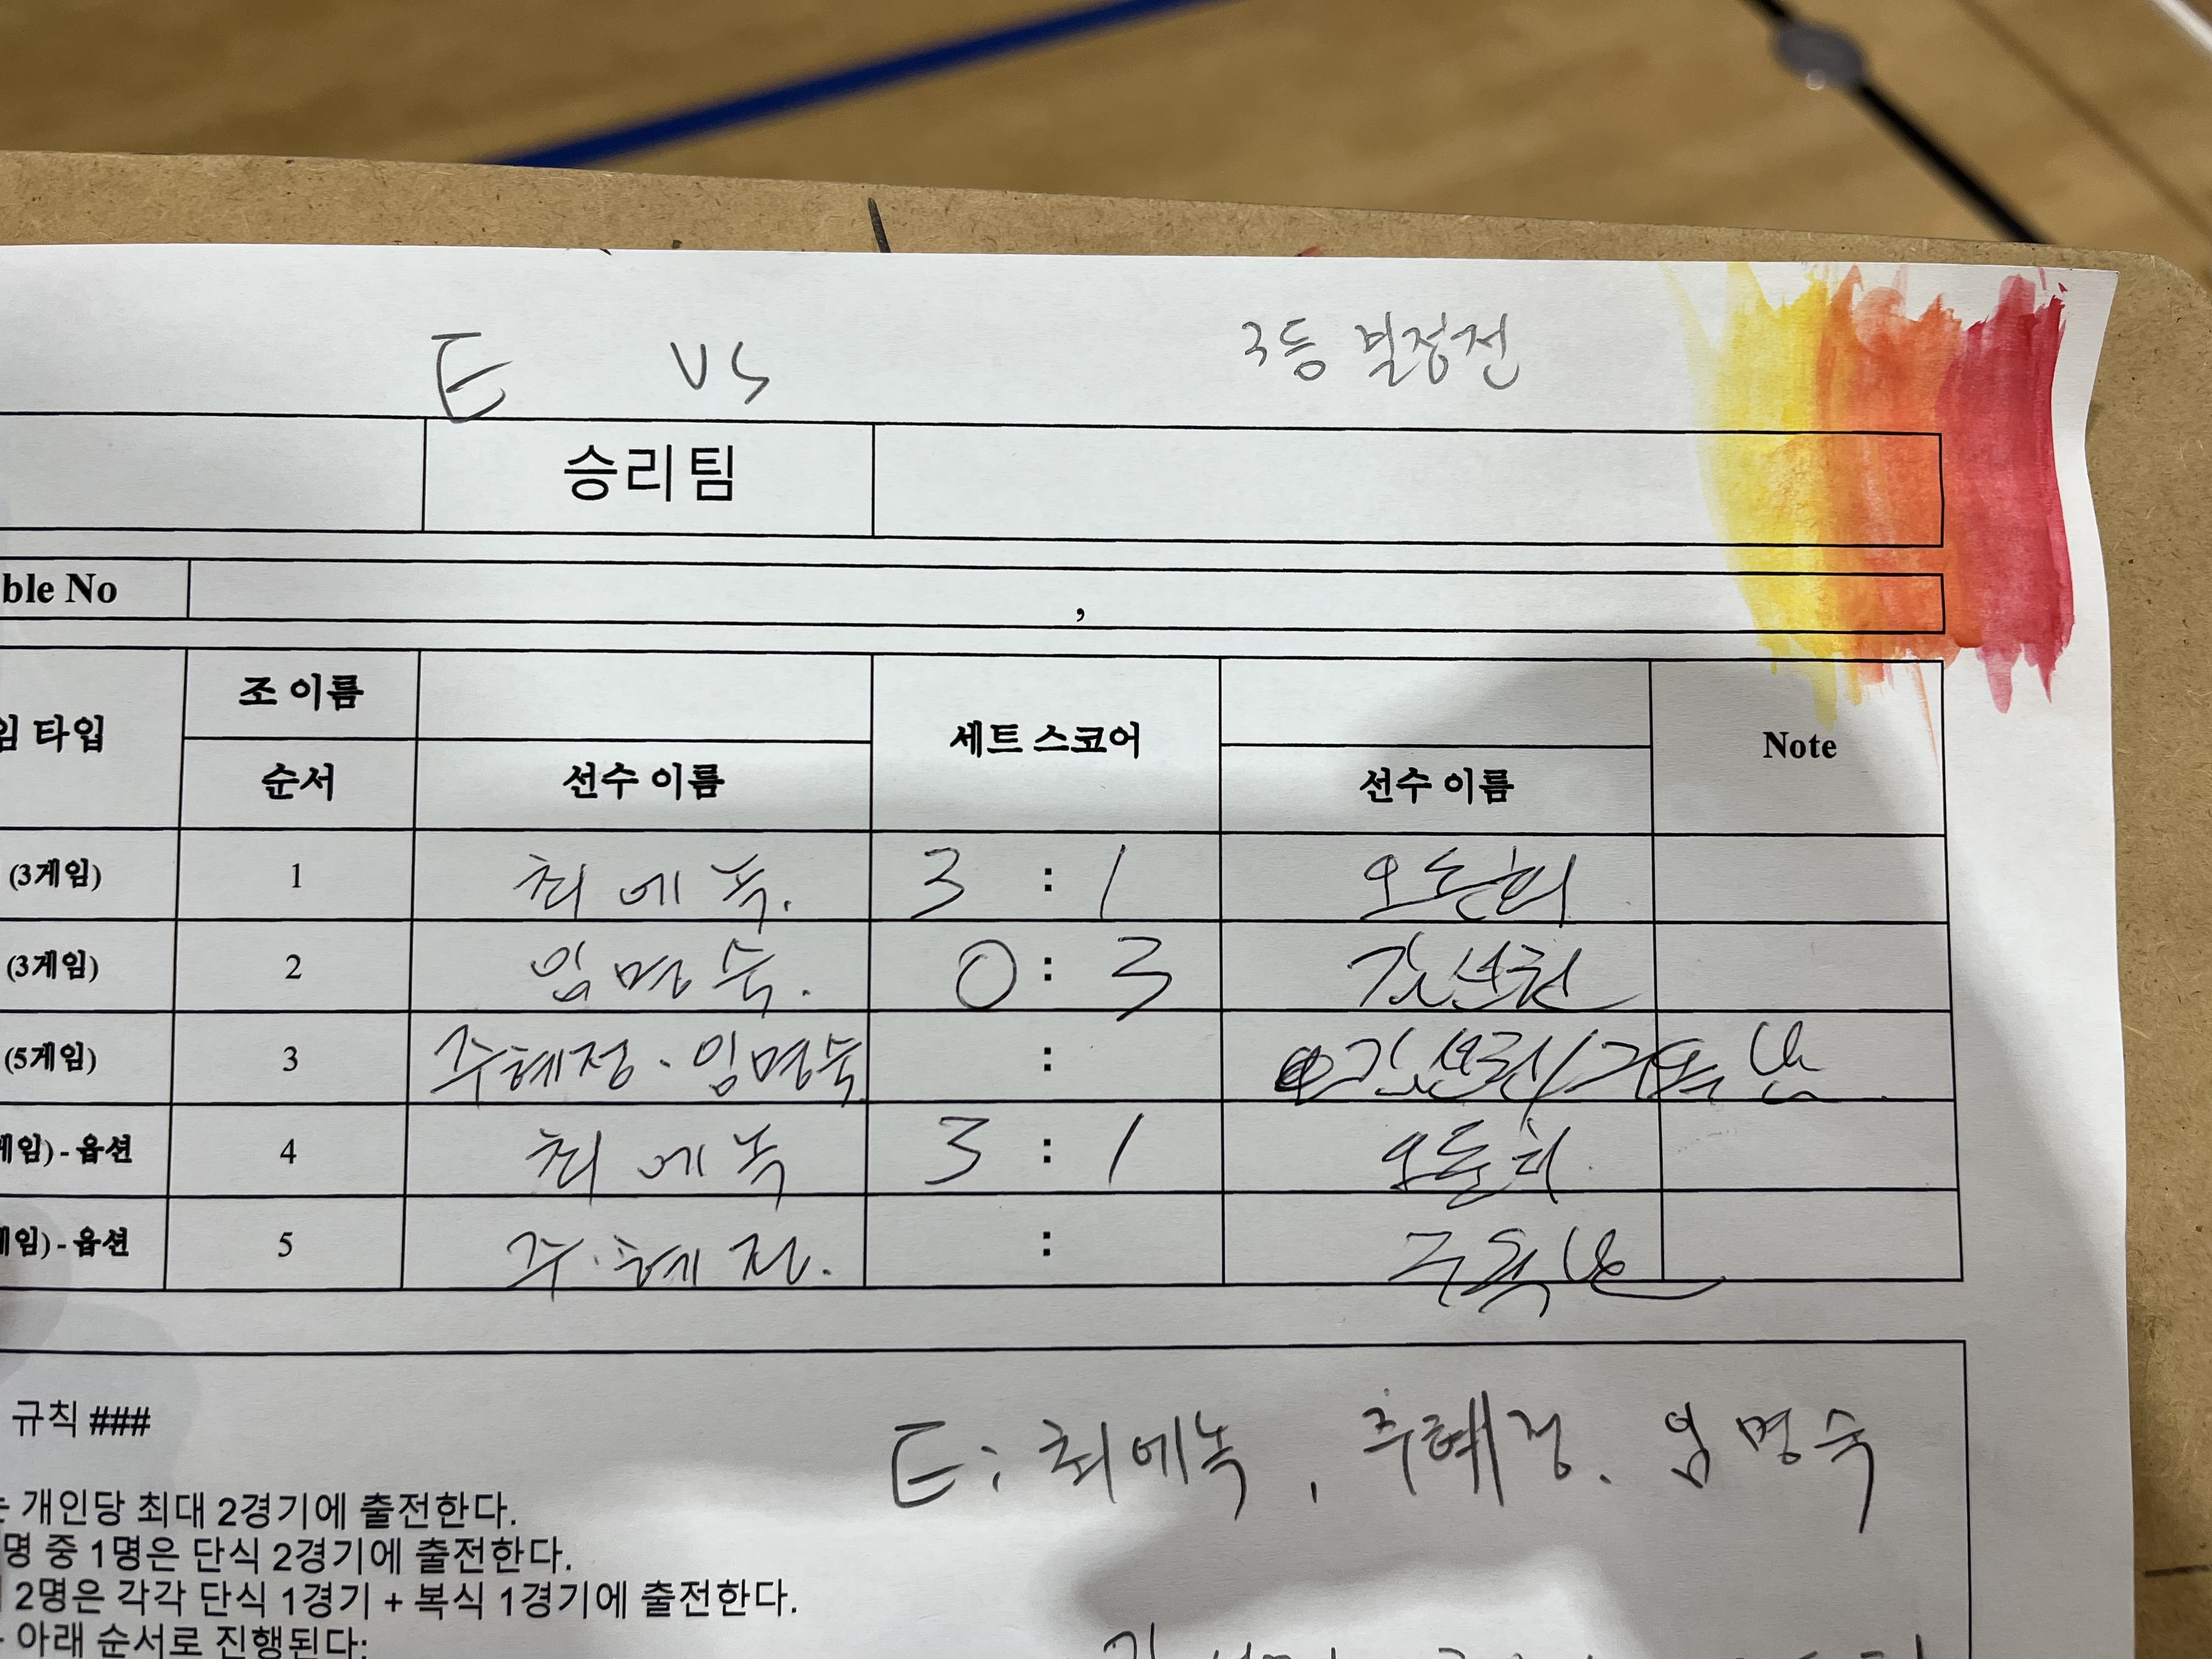 E vs 3등 결정전
승리팀
ble No ,
임 타입 조 이름 세트 스코어 Note
순서 선수 이름 선수 이름
(3게임) 1 최에녹. 3 : 1
(3게임) 2 임명숙. 0 : 3
(5게임) 3 주혜정 · 임명숙 :
게임) - 옵션 4 최에녹 3 : 1
게임) - 옵션 5 주혜정. :
규칙 ###
E : 최에녹, 주혜정. 임명숙
개인당 최대 2경기에 출전한다.
명 중 1명은 단식 2경기에 출전한다.
2명은 각각 단식 1경기 + 복식 1경기에 출전한다.
아래 순서로 진행된다: